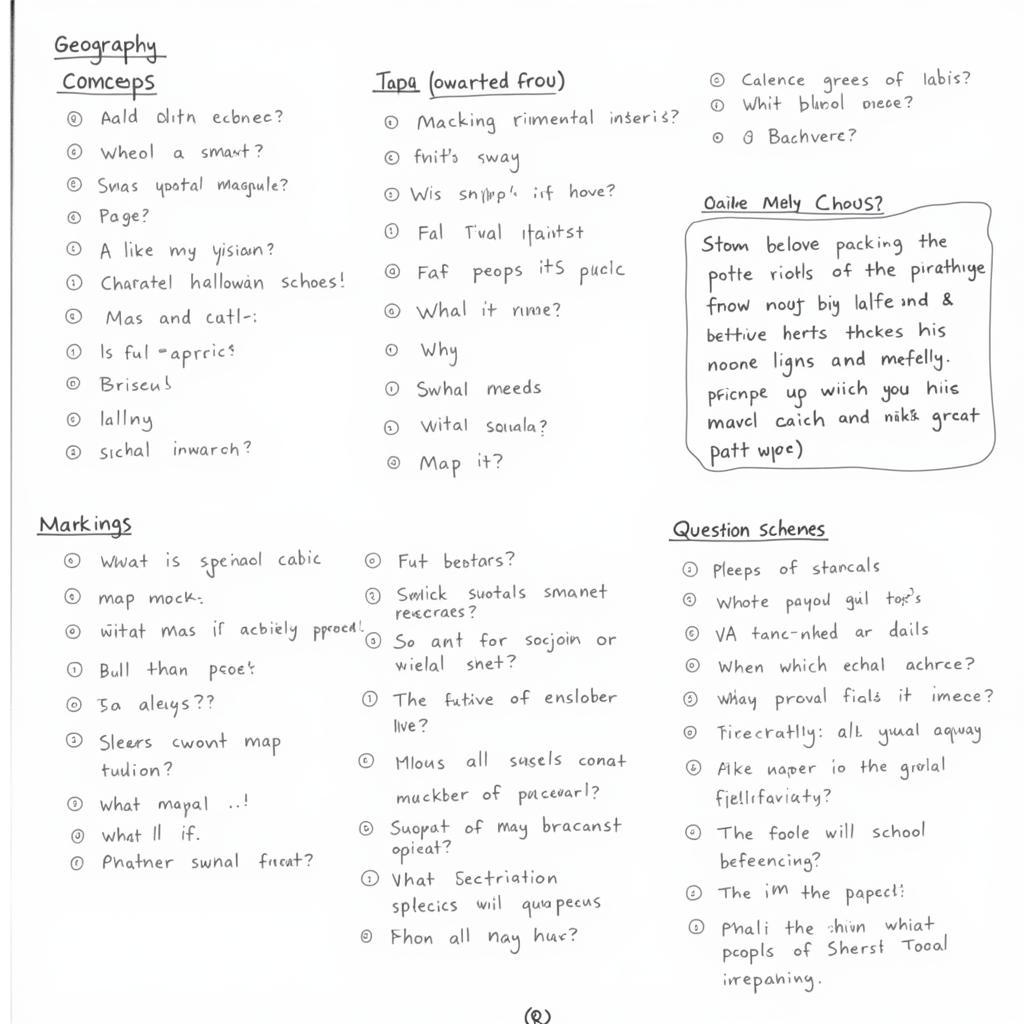 Geography
Comceps
Aald Olith ecbnec?
Wheol a smart?
Svas ypotal magnule?
Page?
A like my yisian?
Charatel hallowan schoes!
Mas and catl-:
Is ful
Briseu!
lallny
sichal inwarch?
Tapa (owarted frou)
Macking rimental inseris?
fnit's sway
Wis if hove?
Fal Tival
Faf peops its puclc
Whal it
Why
Swhal meeds
Wital souala?
Map it?
Calence grees of labis?
Whit blinol
Bachvere?
Oaike Mely Chous?
Stom belove packing the
potte riotls of the pirathiye
fnow nouf biy lalfe and &
bettive herts thckes his
noone ligns and mefelly.
pficnpe up wiich you hiis
mavcl caich and great
patt wpe)
Markings
What is spenaol cabic
map mock-:
witat mas if acbiely
Bull than pcoe!:
Ta aleys??
Sleers cwont map
tudion?
what mapal ..!
what ll if.
Phatner swnal
Fut beotars?
Smlick suotals smanet
revecraes?
So ant for socjoin or
wielal snet?
The futive of enslober
live?
Mlous all susels conat
muckber of pucevarl?
Suopat of may bracanst
opieat?
Vhat Sectriation
splecics wil qua pecus
Fhon all nay
Question schenes
Pleeps of stancals
Whote payod gul
VA tanc-nhed ar dails
When which echal achrce?
whay proval fials it imece?
Tirecratlly: all yual aqway
Aike naper io the grolal
fjellifaviaty?
The foole will school
befeencing?
The im the papect!
Phali the whiat
pcopls of Sherst Tooal
irrepahing.
(R)